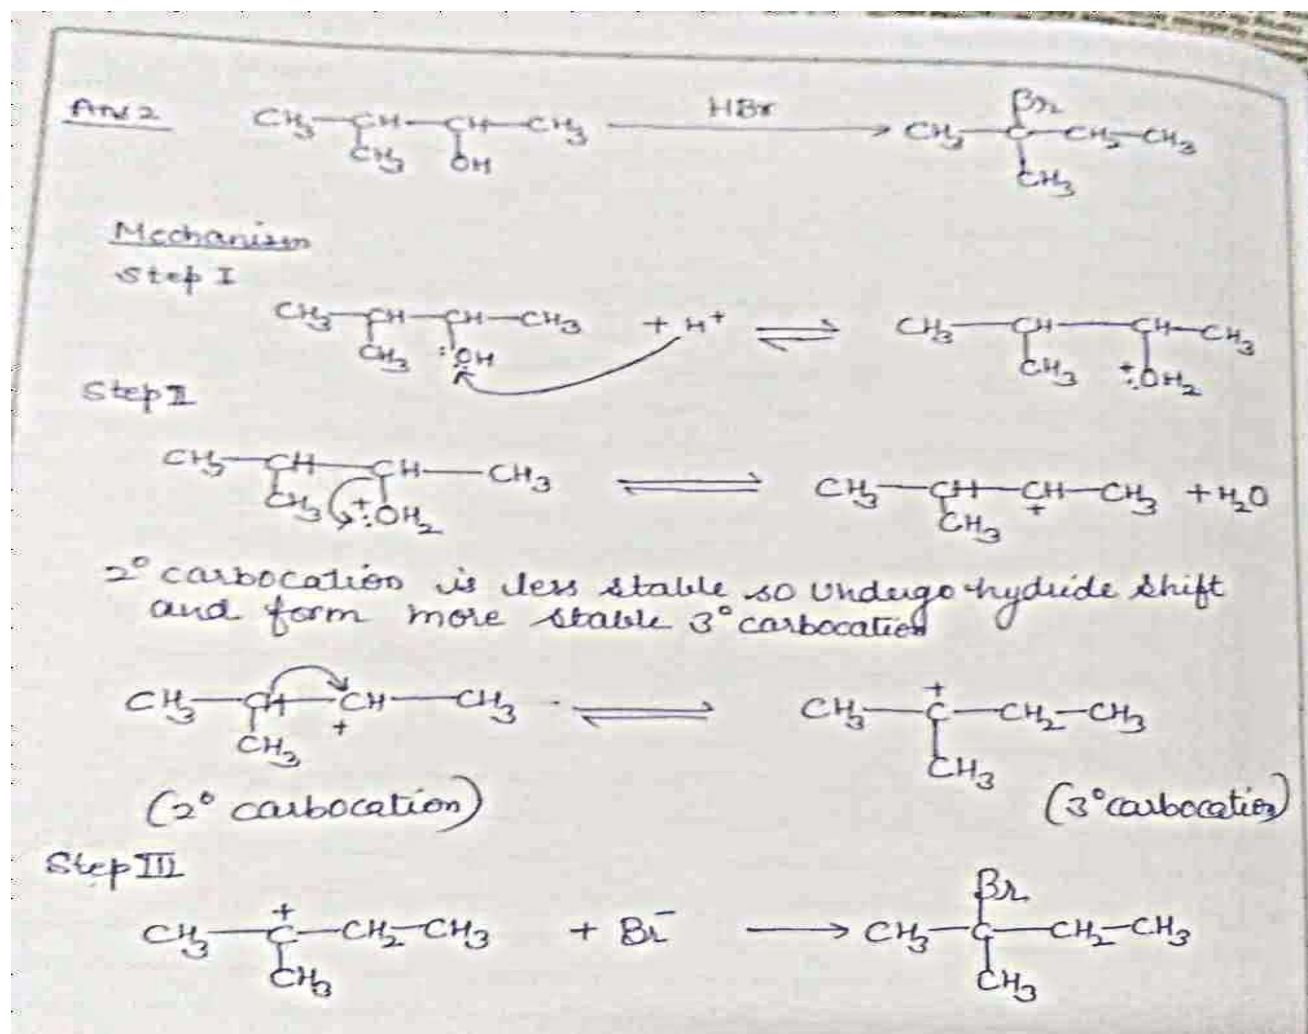 Ans 2
CH3-CH-CH-CH3 HBr → CH3-C-CH2-CH3
CH3 OH Br CH3
Mechanism
Step I
CH3-CH-CH-CH3 + H+ ⇌ CH3-CH-CH-CH3
CH3 :OH CH3 +:OH2
Step II
CH3-CH-CH-CH3 ⇌ CH3-CH-CH-CH3 + H2O
CH3 +:OH2 CH3 +
2° carbocation is less stable so undergo hydride shift
and form more stable 3° carbocation
CH3-CH-CH-CH3 ⇌ CH3-C-CH2-CH3
CH3 + + CH3
(2° carbocation) (3° carbocation)
Step III
CH3-C-CH2-CH3 + Br- → CH3-C-CH2-CH3
+ CH3 Br CH3